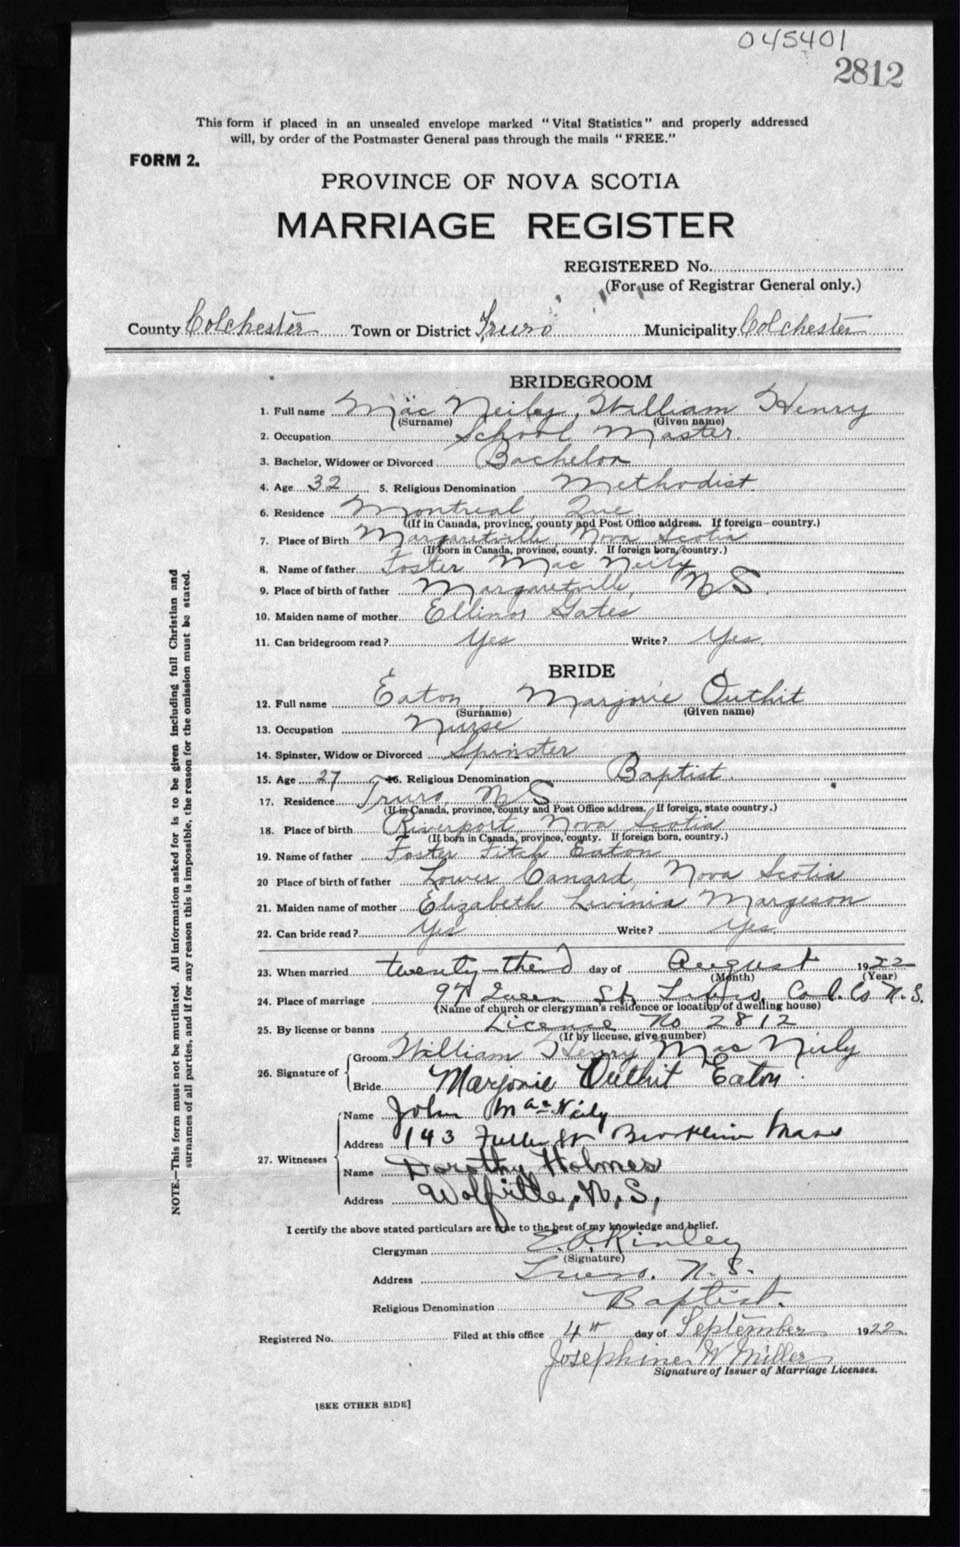 045401
2812
This form if placed in an unsealed envelope marked "Vital Statistics" and properly addressed
will, by order of the Postmaster General pass through the mails "FREE."
FORM 2.
PROVINCE OF NOVA SCOTIA
MARRIAGE REGISTER
REGISTERED No.
(For use of Registrar General only.)
County Colchester Town or District Truro Municipality Colchester
BRIDEGROOM
1. Full name Mac Neily, William Henry
(Surname) (Given name)
2. Occupation School Master.
3. Bachelor, Widower or Divorced Bachelor
4. Age 32 5. Religious Denomination Methodist
6. Residence Montreal Que
(If in Canada, province, county and Post Office address. If foreign—country.)
7. Place of Birth Margaretville, Nova Scotia
(If born in Canada, province, county. If foreign born, country.)
8. Name of father Foster Mac Neily
9. Place of birth of father Margaretville, NS.
10. Maiden name of mother Ellinor Gates
11. Can bridegroom read? Yes Write? Yes.
BRIDE
12. Full name Eaton, Marjorie Outhit
(Surname) (Given name)
13. Occupation Nurse
14. Spinster, Widow or Divorced Spinster
15. Age 27 16. Religious Denomination Baptist
17. Residence Truro, NS
(If in Canada, province, county and Post Office address. If foreign, state country.)
18. Place of birth Riverport Nova Scotia
(If born in Canada, province, county. If foreign born, country.)
19. Name of father Foster Fitch Eaton
20 Place of birth of father Lower Canard, Nova Scotia
21. Maiden name of mother Elizabeth Levinia Margeson
22. Can bride read? Yes Write? Yes.
23. When married twenty-third day of August 1922
(Month) (Year)
24. Place of marriage 97 Queen St, Truro, Col. Co N.S.
(Name of church or clergyman's residence or location of dwelling house)
25. By license or banns License No 2812
(If by license, give number)
26. Signature of
Groom William Henry MacNeily
Bride Marjorie Outhit Eaton.
27. Witnesses
Name John MacNeily
Address 143 Fuller St Brookline Mass
Name Dorothy Holmes
Address Wolfville, N.S.,
I certify the above stated particulars are true to the best of my knowledge and belief.
Clergyman E.A. Kinley
(Signature)
Address Truro. N.S.
Religious Denomination Baptist.
Registered No. Filed at this office 4th day of September 1922.
Josephine W Miller
Signature of Issuer of Marriage Licenses.
[SEE OTHER SIDE]
NOTE.—This form must not be mutilated. All information asked for is to be given including full Christian and
surnames of all parties, and if for any reason this is impossible, the reason for the omission must be stated.